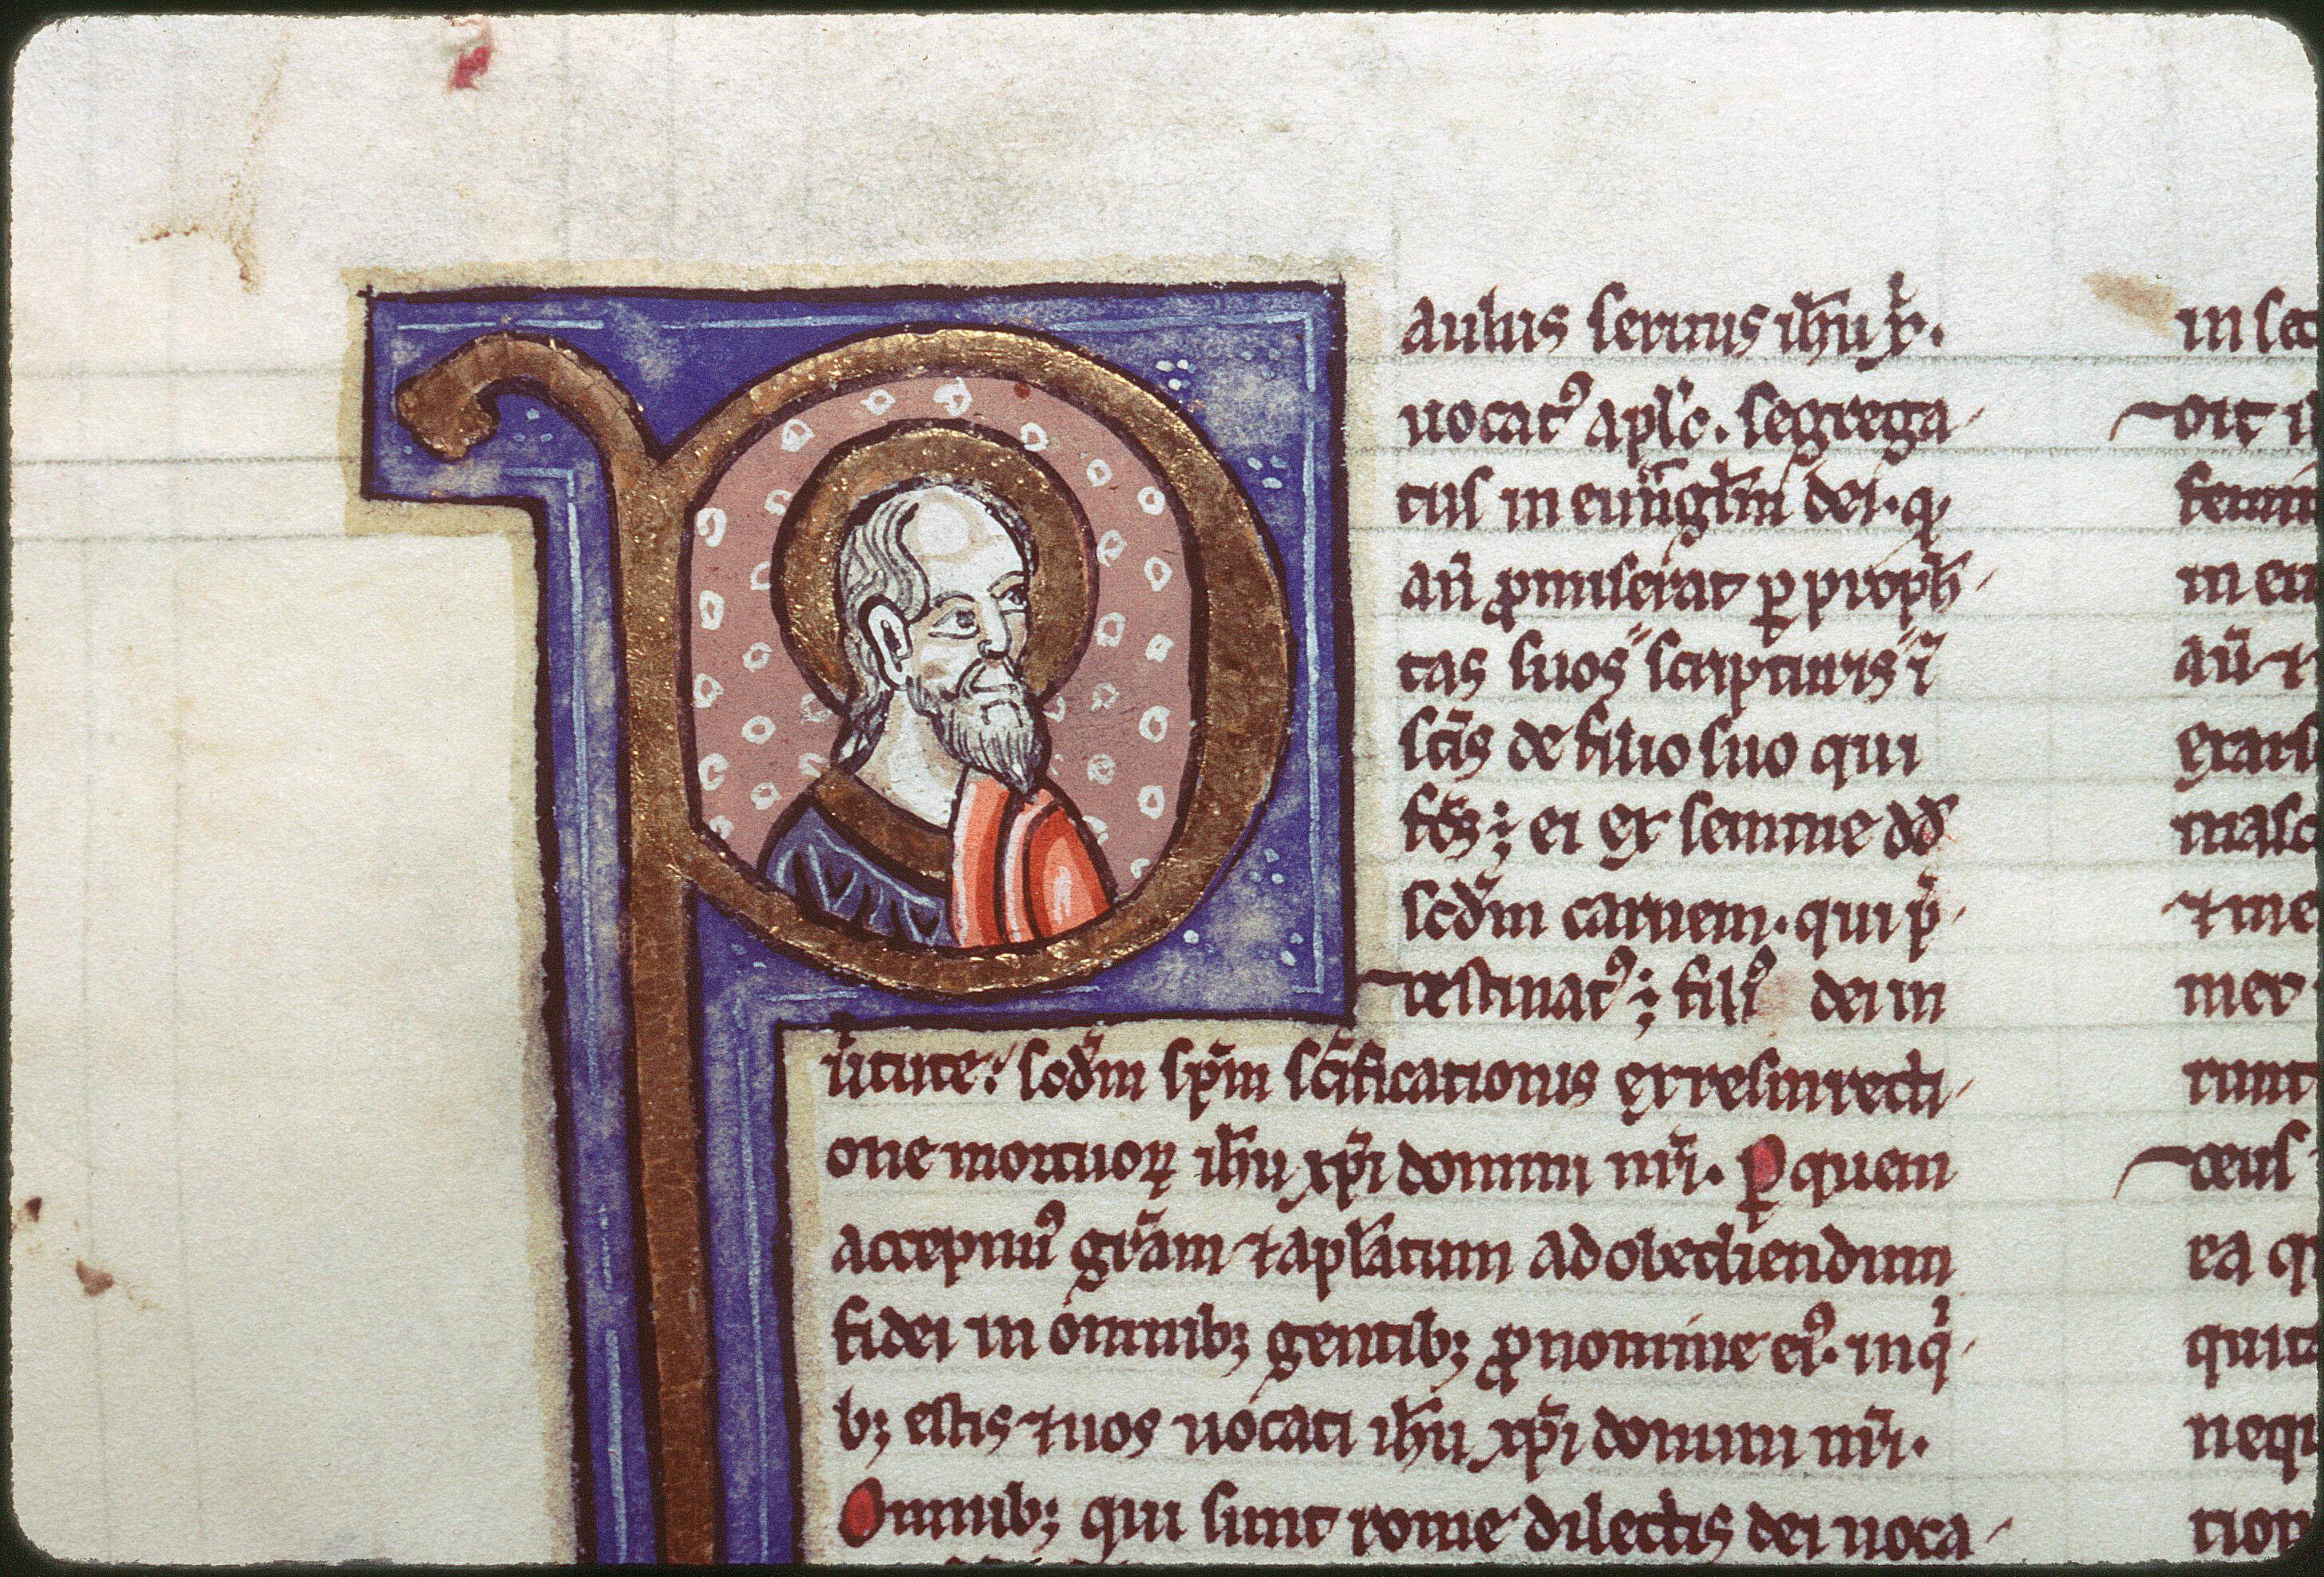 Paulus seruus ih̅u xͥ.
uocatꝰ aplc̅. segrega-
tus in euu̅gl̅m dei. qͩ
an̅ ꝓmiserat ꝑ proph̅-
tas suos ̎ scripturis ̎ ı̅
sc̅is de filio suo qui
fc̅s ; ei ex semine dd̅
scdm̅ carnem. qui p̅-
destinatꝰ ; filiꝰ dei in
uͥtute: scdm̅ sp̅m sc̅ificationis ex resurrecti-
one mortuoꝝ ih̅u xp̅i domini nr̅i. Ꝑ quem
accepimꝰ gr̅am ⁊ apl̅atum ad obediendum
fidei in omnibꝫ gentibꝫ ꝓ nomine eiꝰ. in qͥ-
bꝫ estis ⁊ uos uocati ih̅u xp̅i domini nr̅i.
Omnibꝫ qui sunt rome dilectis dei uoca-
in sc
dit i
femin
in eu
au̅ ⁊
masc
⁊ me
mer
runt
deus
ea q
quit
nequ
tion